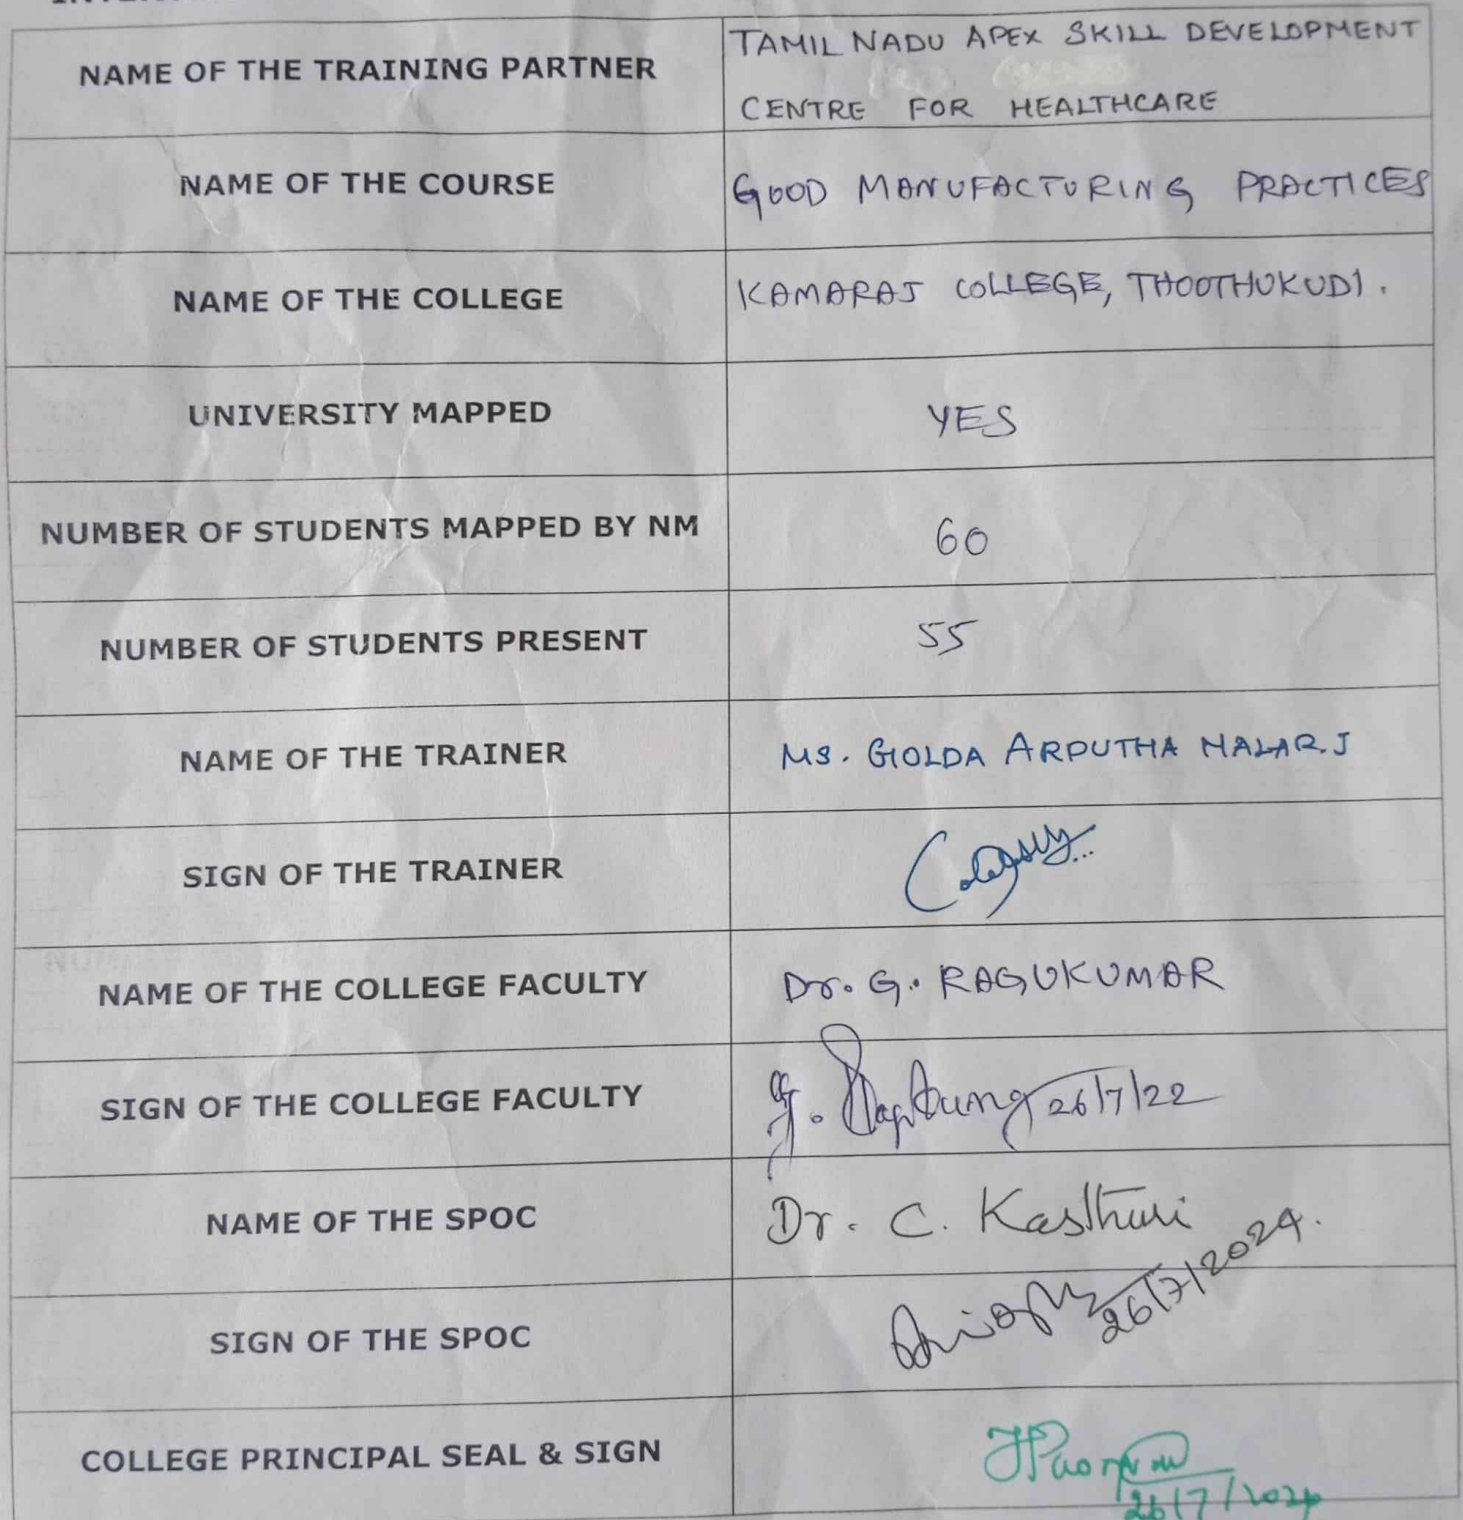 NAME OF THE TRAINING PARTNER
TAMIL NADU APEX SKILL DEVELOPMENT
CENTRE FOR HEALTHCARE
NAME OF THE COURSE
GOOD MANUFACTURING PRACTICES
NAME OF THE COLLEGE
KAMARAJ COLLEGE, THOOTHUKUDI.
UNIVERSITY MAPPED
YES
NUMBER OF STUDENTS MAPPED BY NM
60
NUMBER OF STUDENTS PRESENT
55
NAME OF THE TRAINER
MS. GOLDA ARPUTHA MALAR.J
SIGN OF THE TRAINER
NAME OF THE COLLEGE FACULTY
Dr. G. RAGUKUMAR
SIGN OF THE COLLEGE FACULTY
26/7/22
NAME OF THE SPOC
Dr. C. Kasthuri
SIGN OF THE SPOC
26/7/2024.
COLLEGE PRINCIPAL SEAL & SIGN
26/7/2024